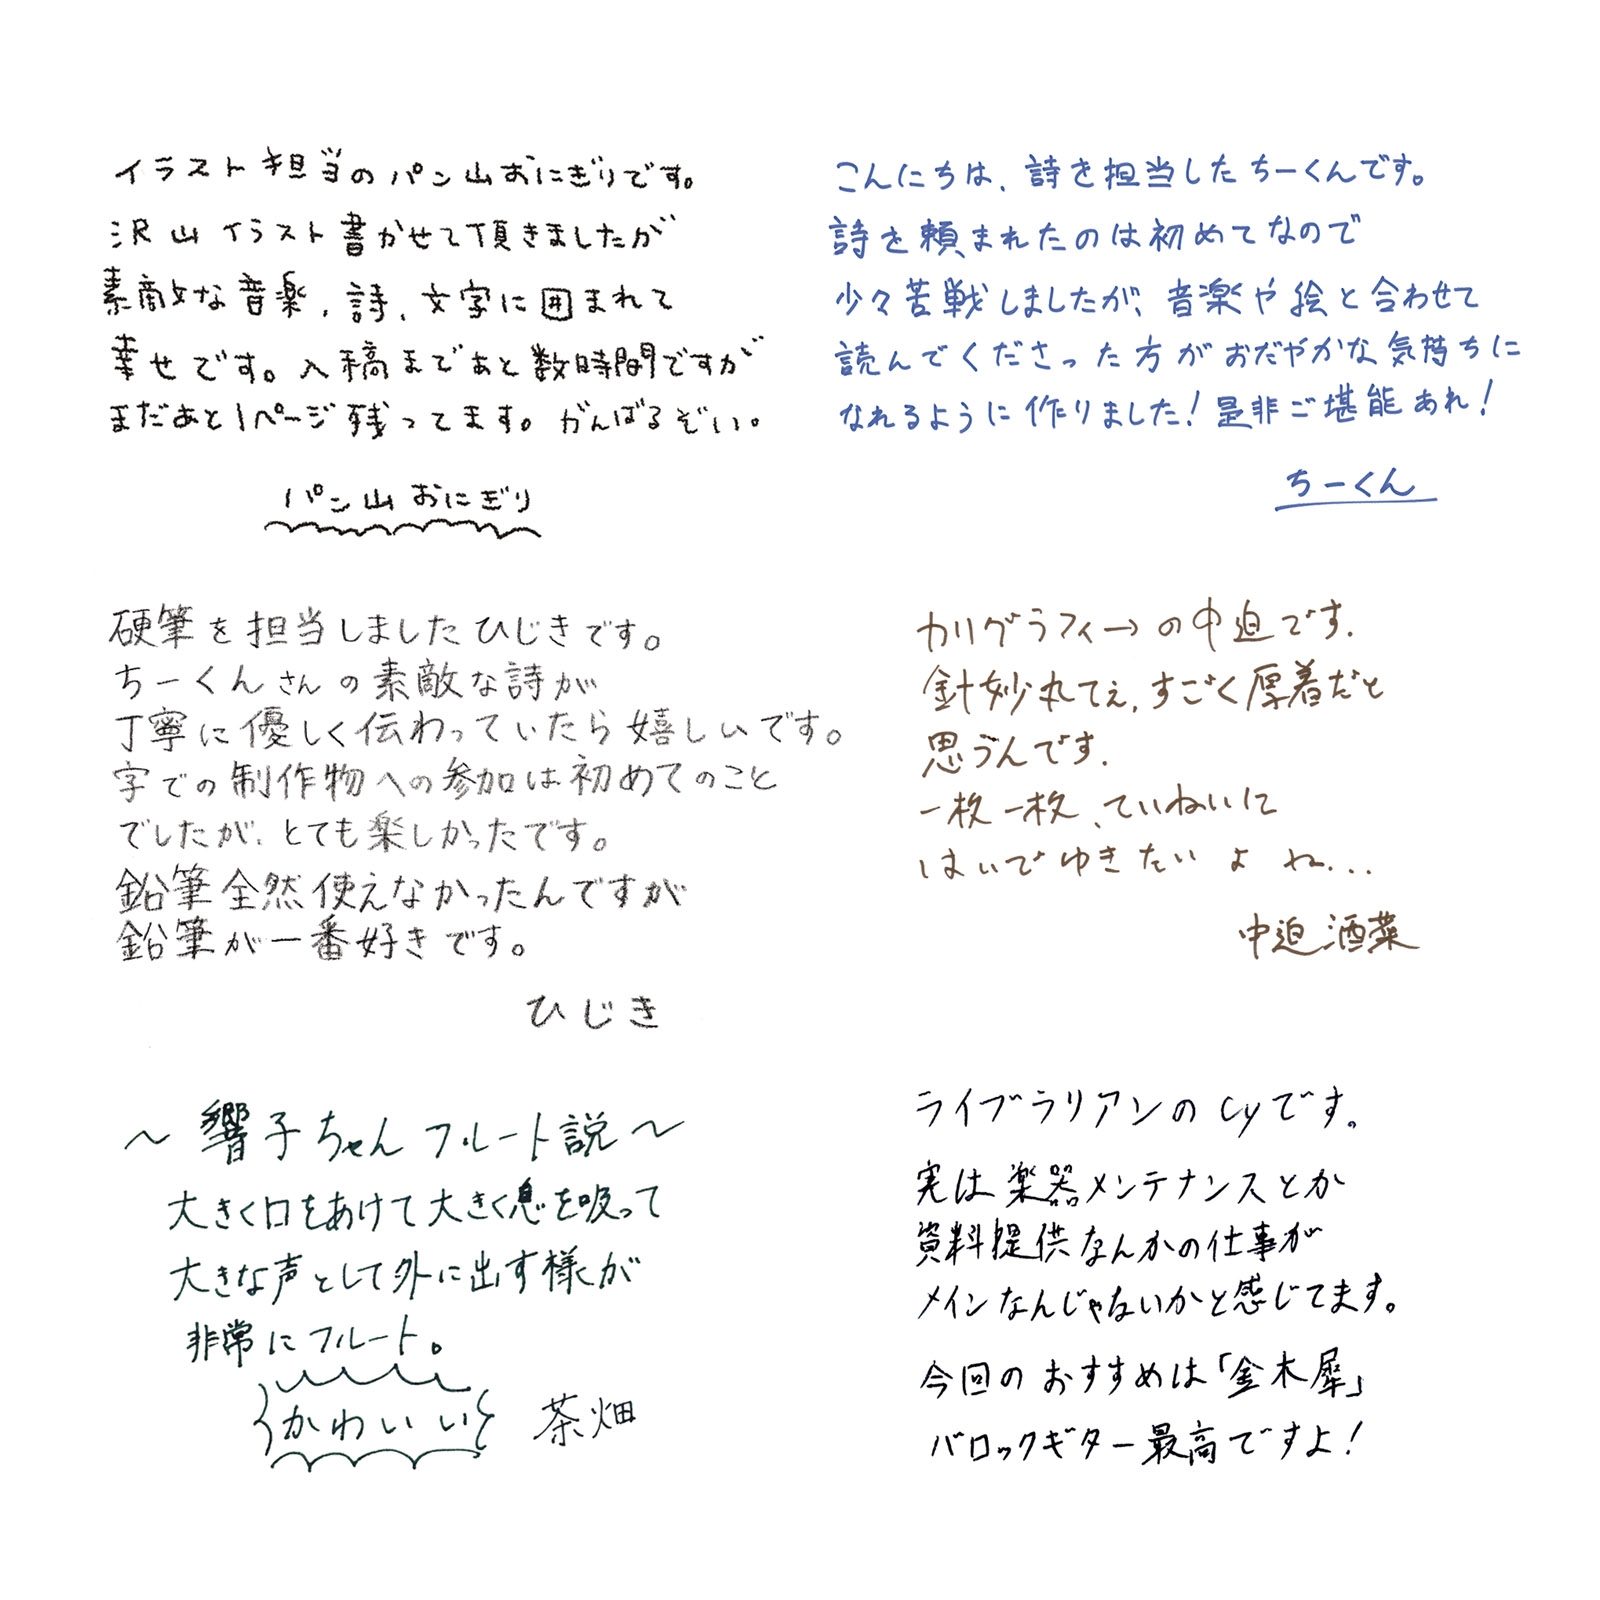 イラスト担当のパン山おにぎりです。
沢山イラスト書かせて頂きましたが
素敵な音楽、詩、文字に囲まれて
幸せです。入稿まであと数時間ですが
まだあと1ページ残ってます。がんばるぞい。
パン山おにぎり
こんにちは、詩を担当したちーくんです。
詩を頼まれたのは初めてなので
少々苦戦しましたが、音楽や絵と合わせて
読んでくださった方がおだやかな気持ちに
なれるように作りました!是非ご堪能あれ!
ちーくん
硬筆を担当しましたひじきです。
ちーくんさんの素敵な詩が
丁寧に優しく伝わっていたら嬉しいです。
字での制作物への参加は初めてのこと
でしたが、とても楽しかったです。
鉛筆全然使えなかったんですが
鉛筆が一番好きです。
ひじき
カリグラフィーの中迫です.
針妙丸てぇ,すごく厚着だと
思うんです.
一枚一枚、ていねいに
はいでゆきたいよね...
中迫酒菜
〜響子ちゃんフルート説〜
大きく口をあけて大きく息を吸って
大きな声として外に出す様が
非常にフルート。
かわいい
茶畑
ライブラリアンのCyです。
実は楽器メンテナンスとか
資料提供なんかの仕事が
メインなんじゃないかと感じてます。
今回のおすすめは「金木犀」
バロックギター最高ですよ!